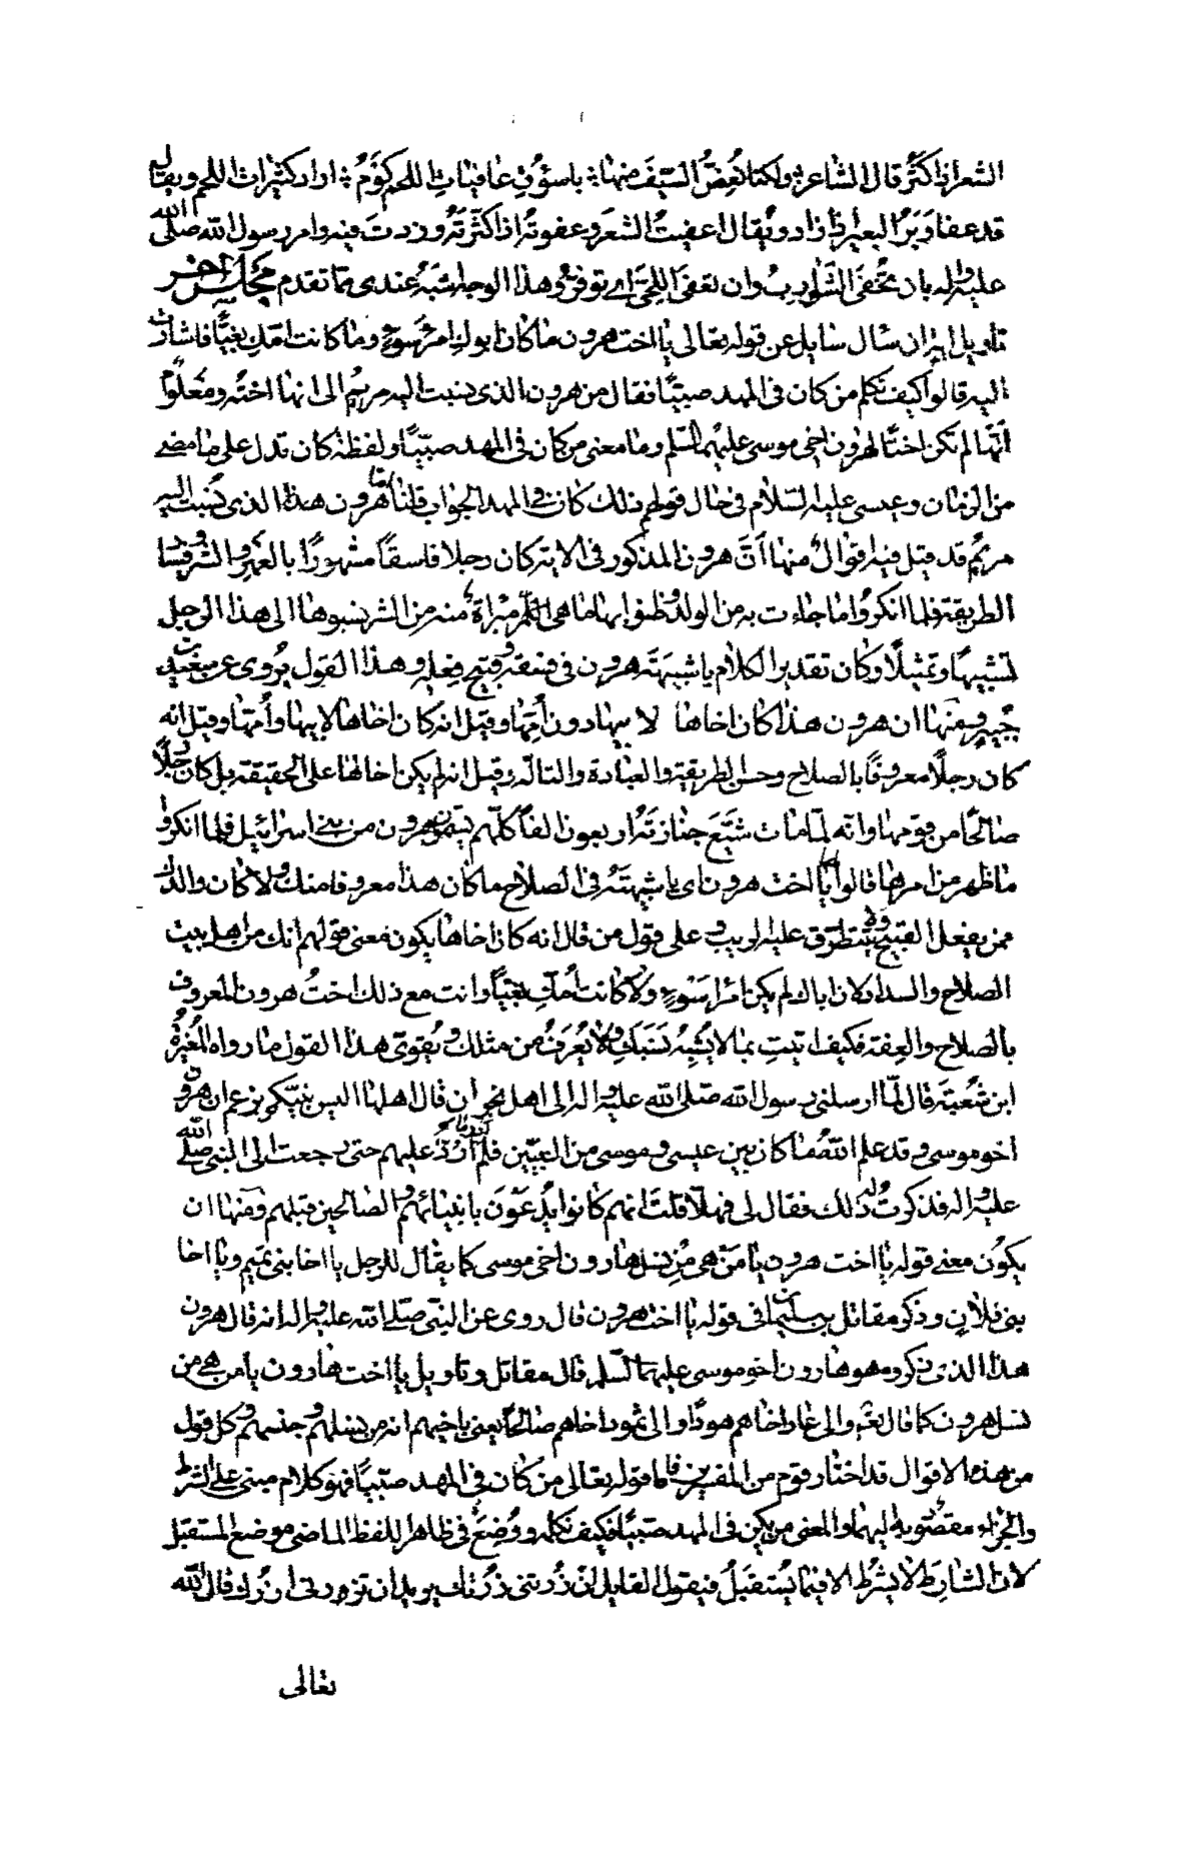 الشعر اذا كثر قال الشاعر ولكنا نُعِضُّ السّيفَ منها باسؤُقِ عافياتِ اللحم كُوْمُ اراد كثيرات اللحم ويقال
قد عفا وَبَرُ البعير اذا زاد ويُقال اعفيتُ الشعر وعفوتُه اذا كثّرتَه وزدتَ فيه وامر رسول الله صلى الله
عليه واله بان تحفى الشوارب وان تعفى اللحى اى توفر وهذا الوجه اشبَهُ عندى مما تقدم مجلس اخر
تاويل اية ان سال سايل عن قوله تعالى يا اخت هرون ما كان ابوك امرَءَ سَوءٍ وما كانت امّكِ بغيًّا فاشارت
اليه قالوا كيف نكلم من كان فى المهد صبيًّا فقال من هرون الذى نسبت اليه مريم الى انها اخته ومعلوم
انّها لم تكن اختًا لهرون اخى موسى عليهما السّلم وما معنى من كان فى المهد صبيًّا ولفظة كان تدل على ما مضى
من الزمان وعيسى عليه السّلام فى حال قولهم ذلك كان فى المهد الجواب قلنا امّا هرون هذا الذى نُسِبت اليه
مريمُ قد قيل فيه اقوالٌ منها انَّ هرون المذكور فى الاية كان رجلا فاسقًا مشهورًا بالعهر والشر وفساد
الطريقة فلما انكروا ما جاءت به من الولد وظنوا بها ما هى مبراةٌ منه من الشر نسبوها الى هذا الرجل
تشبيها وتمثيلًا وكان تقدير الكلام يا شبيهَةَ هرون فى فسقه وقبيح فعله وهذا القول يُروى عن سعيد بن
جُبيرٍ ومنها ان هرون هذا كان اخاها لابيها دون اُمِّها وقيل انه كان اخاها لابيها وأمّها وقيل انه
كان رجلًا معروفًا بالصلاح وحسن الطريقة والعبادة والتالّه وقيل انه لم يكن اخا لها على الحقيقة بل كان رجلًا
صالحًا من قومها وانّه لمّا مات شيّعَ جنازتَهُ اربعون الفًا كلّهم يسمّون هرون من بنى اسرائيل فلما انكروا
ما ظهر من امرها قالوا لها يا اخت هرون اى يا شبيهتَهُ فى الصلاح ما كان هذا معروفا منك ولا كان والدك
ممن يفعل القبيح ولا يتطرّق عليه الريب وعلى قول من قال انه كان اخاها يكون معنى قولهم انك من اهل بيت
الصلاح والسداد لان اباك لم يكن امرَا سَوْءٍ ولا كانت اُمّكِ بغيًّا وانت مع ذلك اختُ هرون المعروف
بالصلاح والعفة فكيف اتيتِ بما لا يُشبِهُ نَسَبَكِ ولا يُعرَفُ من مثلك ويُقوّى هذا القول ما رواه المُغيرةُ
ابن شُعبَة قال لمّا ارسلنى رسول الله صلى الله عليه واله الى اهل نجران قال اهلها اليس نبيّكم يزعم ان هرون
اخو موسى وقد علم الله ما كان بين عيسى وموسى من النبيّين فلم ادر ما اردّ عليهم حتى رجعت الى النبى صلى الله
عليه واله فذكرتُ له ذلك فقال لى فهلّا قلتَ انهم كانوا يُدعَوْنَ بانبيائهم والصالحين قبلهم ومنها ان
يكون معنى قوله يا اخت هرون يا مَن هى مِن نسل هارون اخى موسى كما يقال للرجل يا اخا بنى تميم ويا اخا
بنى فلانٍ وذكر مقاتل بن سليمان فى قوله يا اخت هرون قال روى عن النبى صلى الله عليه واله انه قال هرون
هذا الذى ذكروه هو هارون اخو موسى عليهما السّلم قال مقاتل وتاويل يا اخت هارون يا من هى من
نسل هرون كما قال تعَ والى عاد اخاهم هودًا والى ثمود اخاهم صالحًا يعنى باخيهم انه من نسلهم وجنسهم وكل قول
من هذه الاقوال قد اختاره قوم من المفسرين فاما قوله تعالى من كان فى المهد صبيًّا فهو كلام مبنى على الشرط
والجزاء مقصودٌ به اليهما والمعنى من يكن فى المهد صبيًّا فكيف نكلمه ووُضِعَ فى ظاهر اللفظ الماضى موضع المستقبل
لان الشارط لا يشرُط الا فيما يُستقبَلُ فيقول القايل ان زُرتنى زرُتك يريد ان تزورنى ازُرك قال الله
تعالى